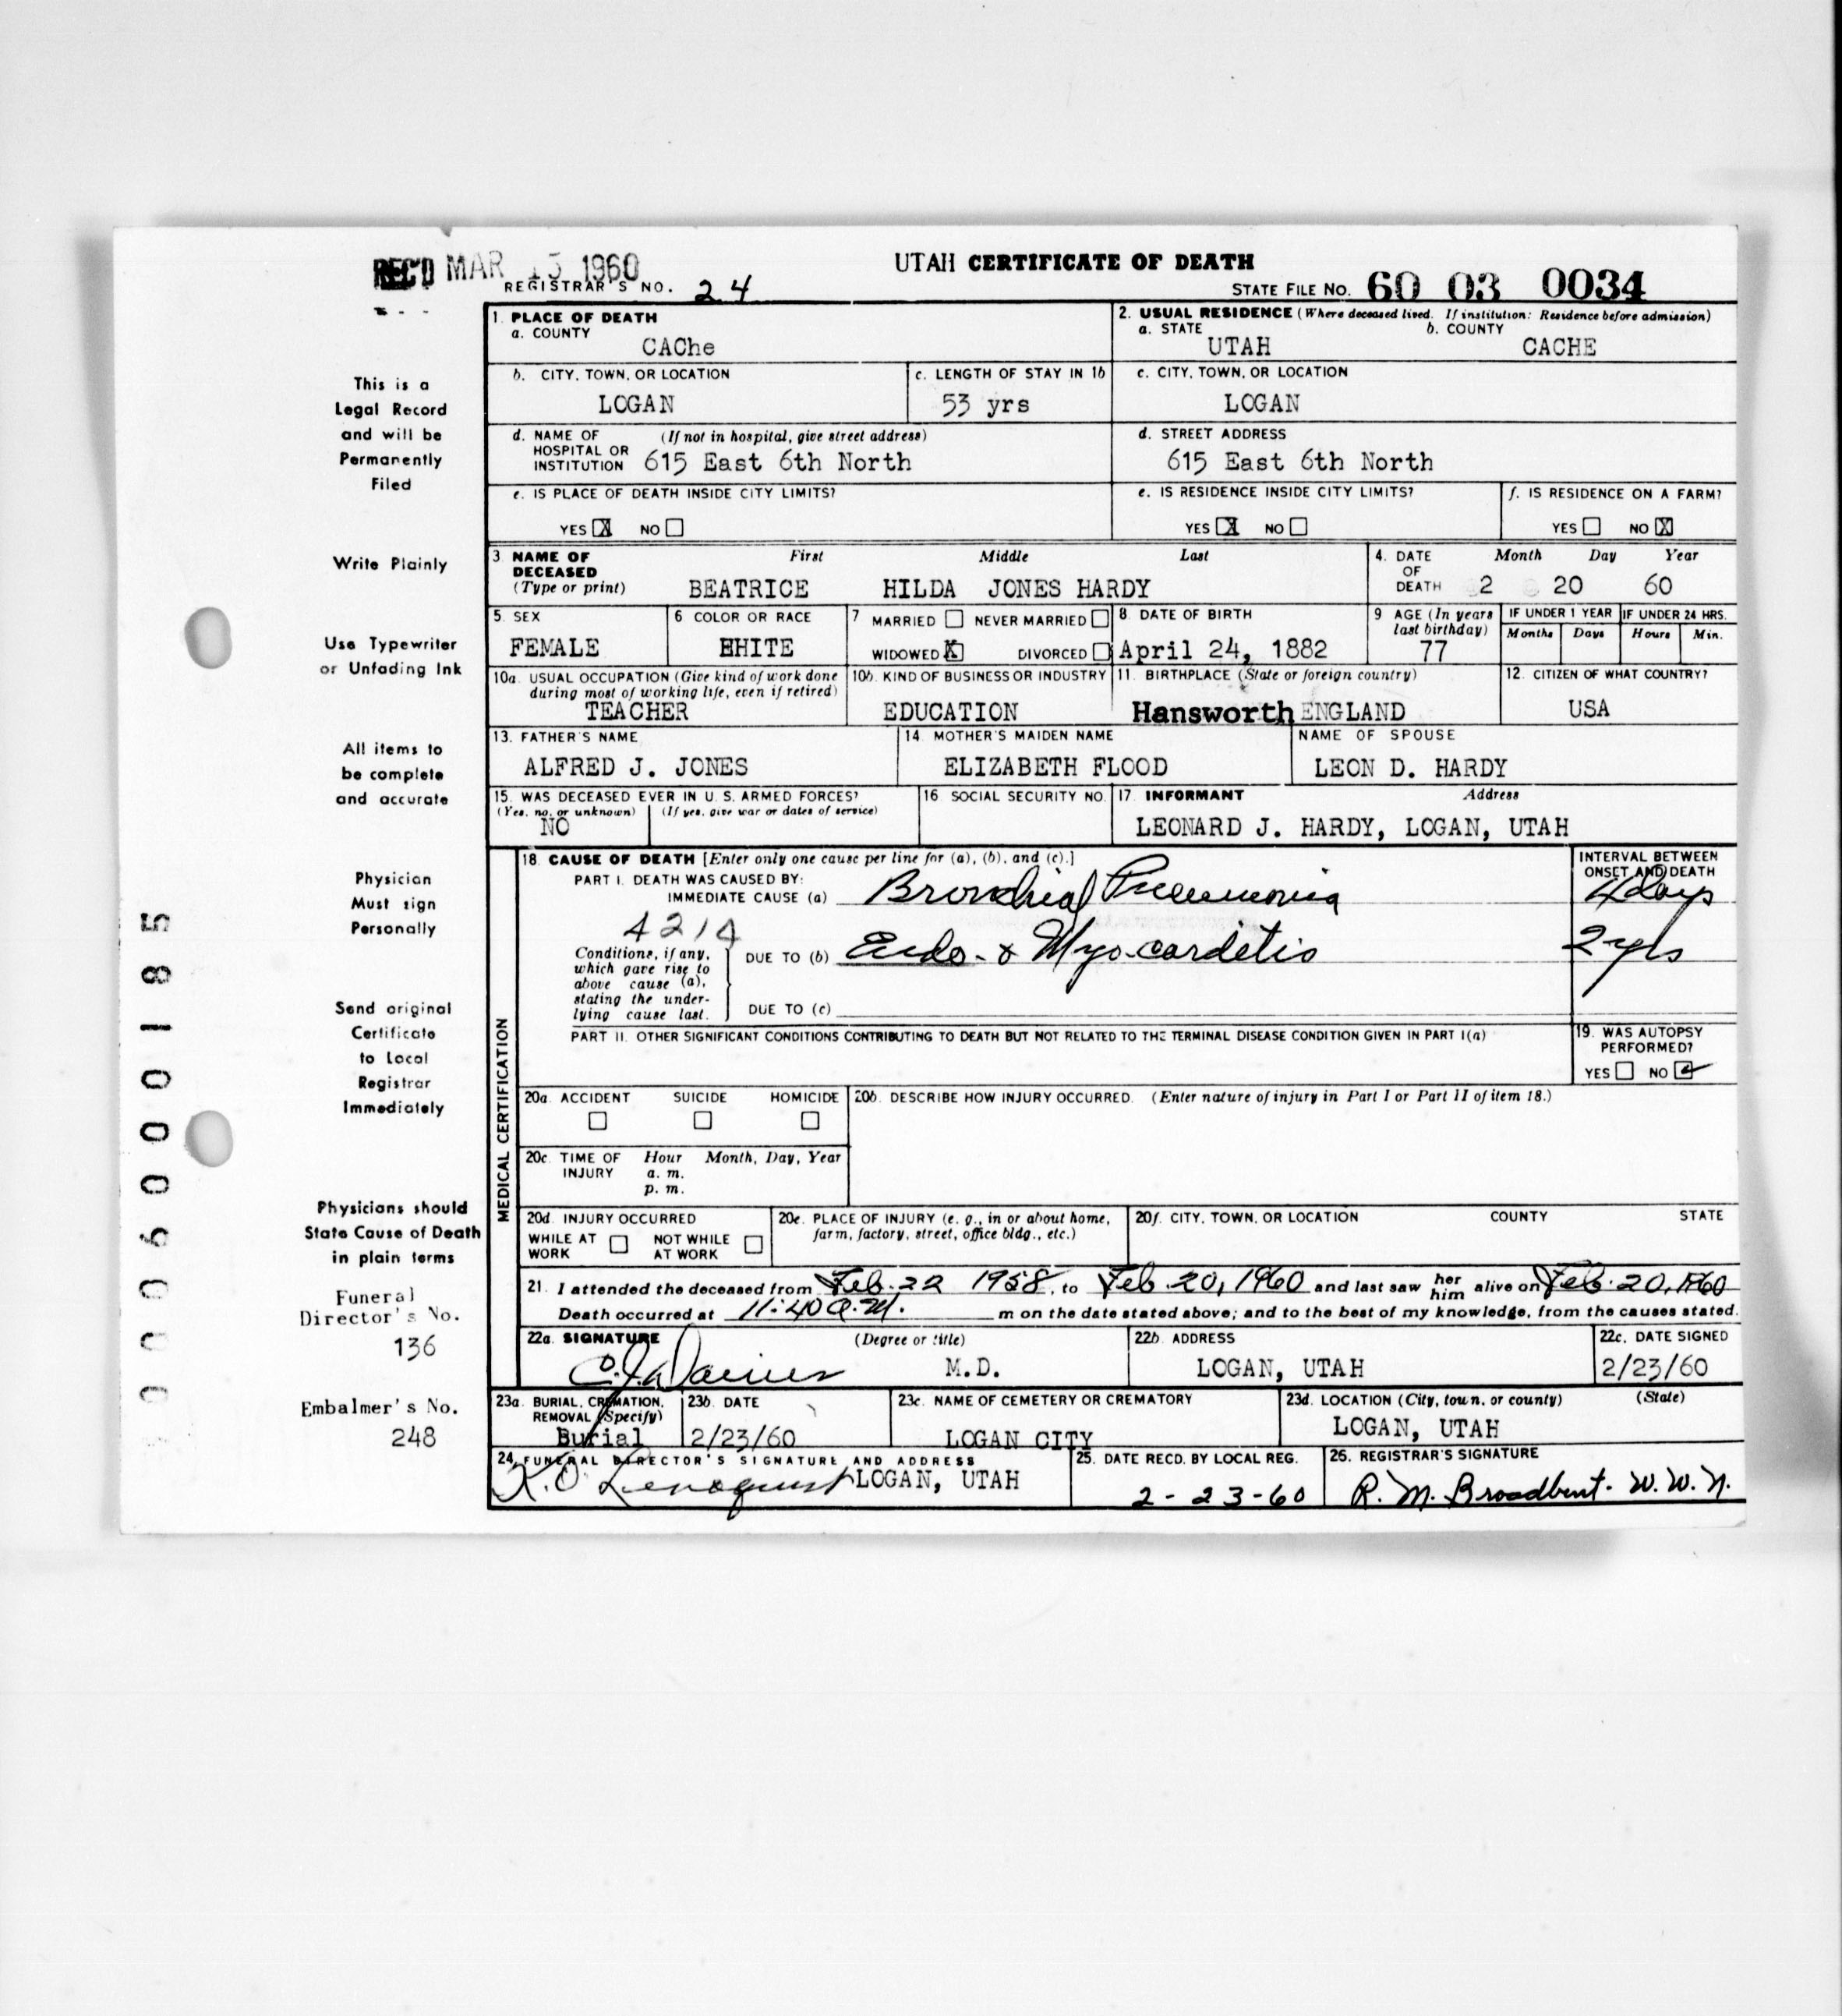 REC'D MAR 15 1960
UTAH CERTIFICATE OF DEATH
REGISTRAR'S NO. 24
STATE FILE NO. 60 03 0034
This is a
Legal Record
and will be
Permanently
Filed
Write Plainly
Use Typewriter
or Unfading Ink
All items to
be complete
and accurate
Physician
Must sign
Personally
Send original
Certificate
to Local
Registrar
Immediately
Physicians should
State Cause of Death
in plain terms
Funeral
Director's No.
136
Embalmer's No.
248
0006000185
1. PLACE OF DEATH
a. COUNTY
CAChe
2. USUAL RESIDENCE (Where deceased lived. If institution: Residence before admission)
a. STATE b. COUNTY
UTAH CACHE
b. CITY, TOWN, OR LOCATION
LOGAN
c. LENGTH OF STAY IN 1b
53 yrs
c. CITY, TOWN, OR LOCATION
LOGAN
d. NAME OF (If not in hospital, give street address)
HOSPITAL OR
INSTITUTION 615 East 6th North
d. STREET ADDRESS
615 East 6th North
e. IS PLACE OF DEATH INSIDE CITY LIMITS?
YES X NO
e. IS RESIDENCE INSIDE CITY LIMITS?
YES X NO
f. IS RESIDENCE ON A FARM?
YES NO X
3. NAME OF First Middle Last
DECEASED
(Type or print) BEATRICE HILDA JONES HARDY
4. DATE Month Day Year
OF
DEATH 2 20 60
5. SEX
FEMALE
6 COLOR OR RACE
EHITE
7 MARRIED NEVER MARRIED
WIDOWED X DIVORCED
8. DATE OF BIRTH
April 24, 1882
9 AGE (In years
last birthday)
77
IF UNDER 1 YEAR IF UNDER 24 HRS.
Months Days Hours Min.
10a. USUAL OCCUPATION (Give kind of work done
during most of working life, even if retired)
TEACHER
10b. KIND OF BUSINESS OR INDUSTRY
EDUCATION
11. BIRTHPLACE (State or foreign country)
Hansworth ENGLAND
12. CITIZEN OF WHAT COUNTRY?
USA
13. FATHER'S NAME
ALFRED J. JONES
14 MOTHER'S MAIDEN NAME
ELIZABETH FLOOD
NAME OF SPOUSE
LEON D. HARDY
15. WAS DECEASED EVER IN U. S. ARMED FORCES?
(Yes, no, or unknown) (If yes, give war or dates of service)
NO
16. SOCIAL SECURITY NO.
17. INFORMANT Address
LEONARD J. HARDY, LOGAN, UTAH
MEDICAL CERTIFICATION
18. CAUSE OF DEATH [Enter only one cause per line for (a), (b), and (c).]
PART I. DEATH WAS CAUSED BY:
IMMEDIATE CAUSE (a) Bronchial Pneumonia
INTERVAL BETWEEN
ONSET AND DEATH
4 days
4214
Conditions, if any,
which gave rise to
above cause (a),
stating the under-
lying cause last.
DUE TO (b) Endo- & Myo-cardetis
2 yrs
DUE TO (c)
PART II. OTHER SIGNIFICANT CONDITIONS CONTRIBUTING TO DEATH BUT NOT RELATED TO THE TERMINAL DISEASE CONDITION GIVEN IN PART I(a)
19. WAS AUTOPSY
PERFORMED?
YES NO
20a. ACCIDENT SUICIDE HOMICIDE
20b. DESCRIBE HOW INJURY OCCURRED. (Enter nature of injury in Part I or Part II of item 18.)
20c. TIME OF Hour Month, Day, Year
INJURY a. m.
p. m.
20d. INJURY OCCURRED
WHILE AT NOT WHILE
WORK AT WORK
20e. PLACE OF INJURY (e. g., in or about home,
farm, factory, street, office bldg., etc.)
20f. CITY, TOWN, OR LOCATION COUNTY STATE
21. I attended the deceased from Feb. 22 1958, to Feb 20, 1960 and last saw her him alive on Feb. 20, 1960
Death occurred at 11:40 a.m. m on the date stated above; and to the best of my knowledge, from the causes stated.
22a. SIGNATURE (Degree or title)
M.D.
22b. ADDRESS
LOGAN, UTAH
22c. DATE SIGNED
2/23/60
23a. BURIAL, CREMATION,
REMOVAL (Specify)
Burial
23b. DATE
2/23/60
23c. NAME OF CEMETERY OR CREMATORY
LOGAN CITY
23d. LOCATION (City, town, or county) (State)
LOGAN, UTAH
24. FUNERAL DIRECTOR'S SIGNATURE AND ADDRESS
LOGAN, UTAH
25. DATE RECD. BY LOCAL REG.
2-23-60
26. REGISTRAR'S SIGNATURE
R. M. Broadbent. W. W. N.